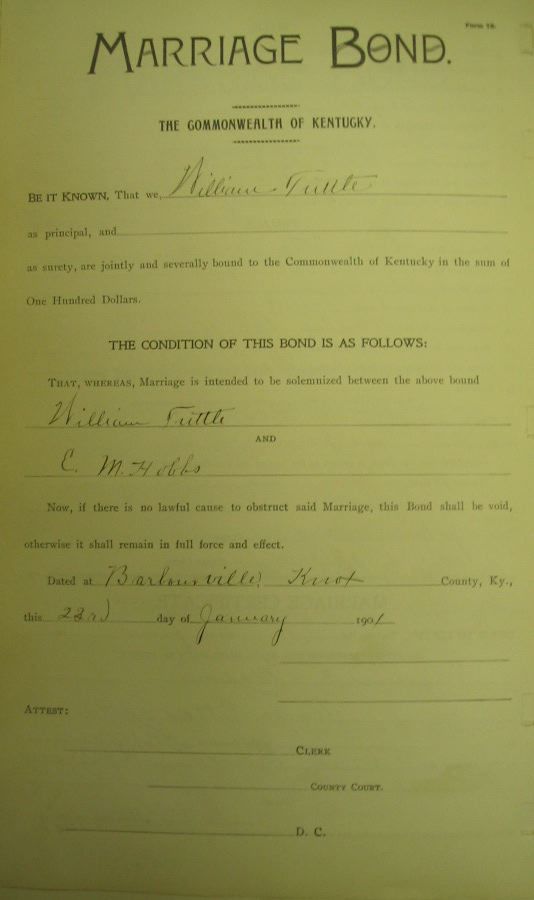 Form 18.
MARRIAGE BOND.
THE COMMONWEALTH OF KENTUCKY.
BE IT KNOWN, That we, William Tuttle
as principal, and
as surety, are jointly and severally bound to the Commonwealth of Kentucky in the sum of
One Hundred Dollars.
THE CONDITION OF THIS BOND IS AS FOLLOWS:
THAT, WHEREAS, Marriage is intended to be solemnized between the above bound
William Tuttle
AND
C. M. Hobbs
Now, if there is no lawful cause to obstruct said Marriage, this Bond shall be void,
otherwise it shall remain in full force and effect.
Dated at Barbourville, Knox County, Ky.,
this 23rd day of January 1901
ATTEST:
CLERK
COUNTY COURT.
D. C.